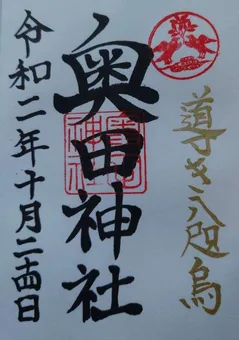 導き八咫烏
奥田神社
令和二年十月二十四日